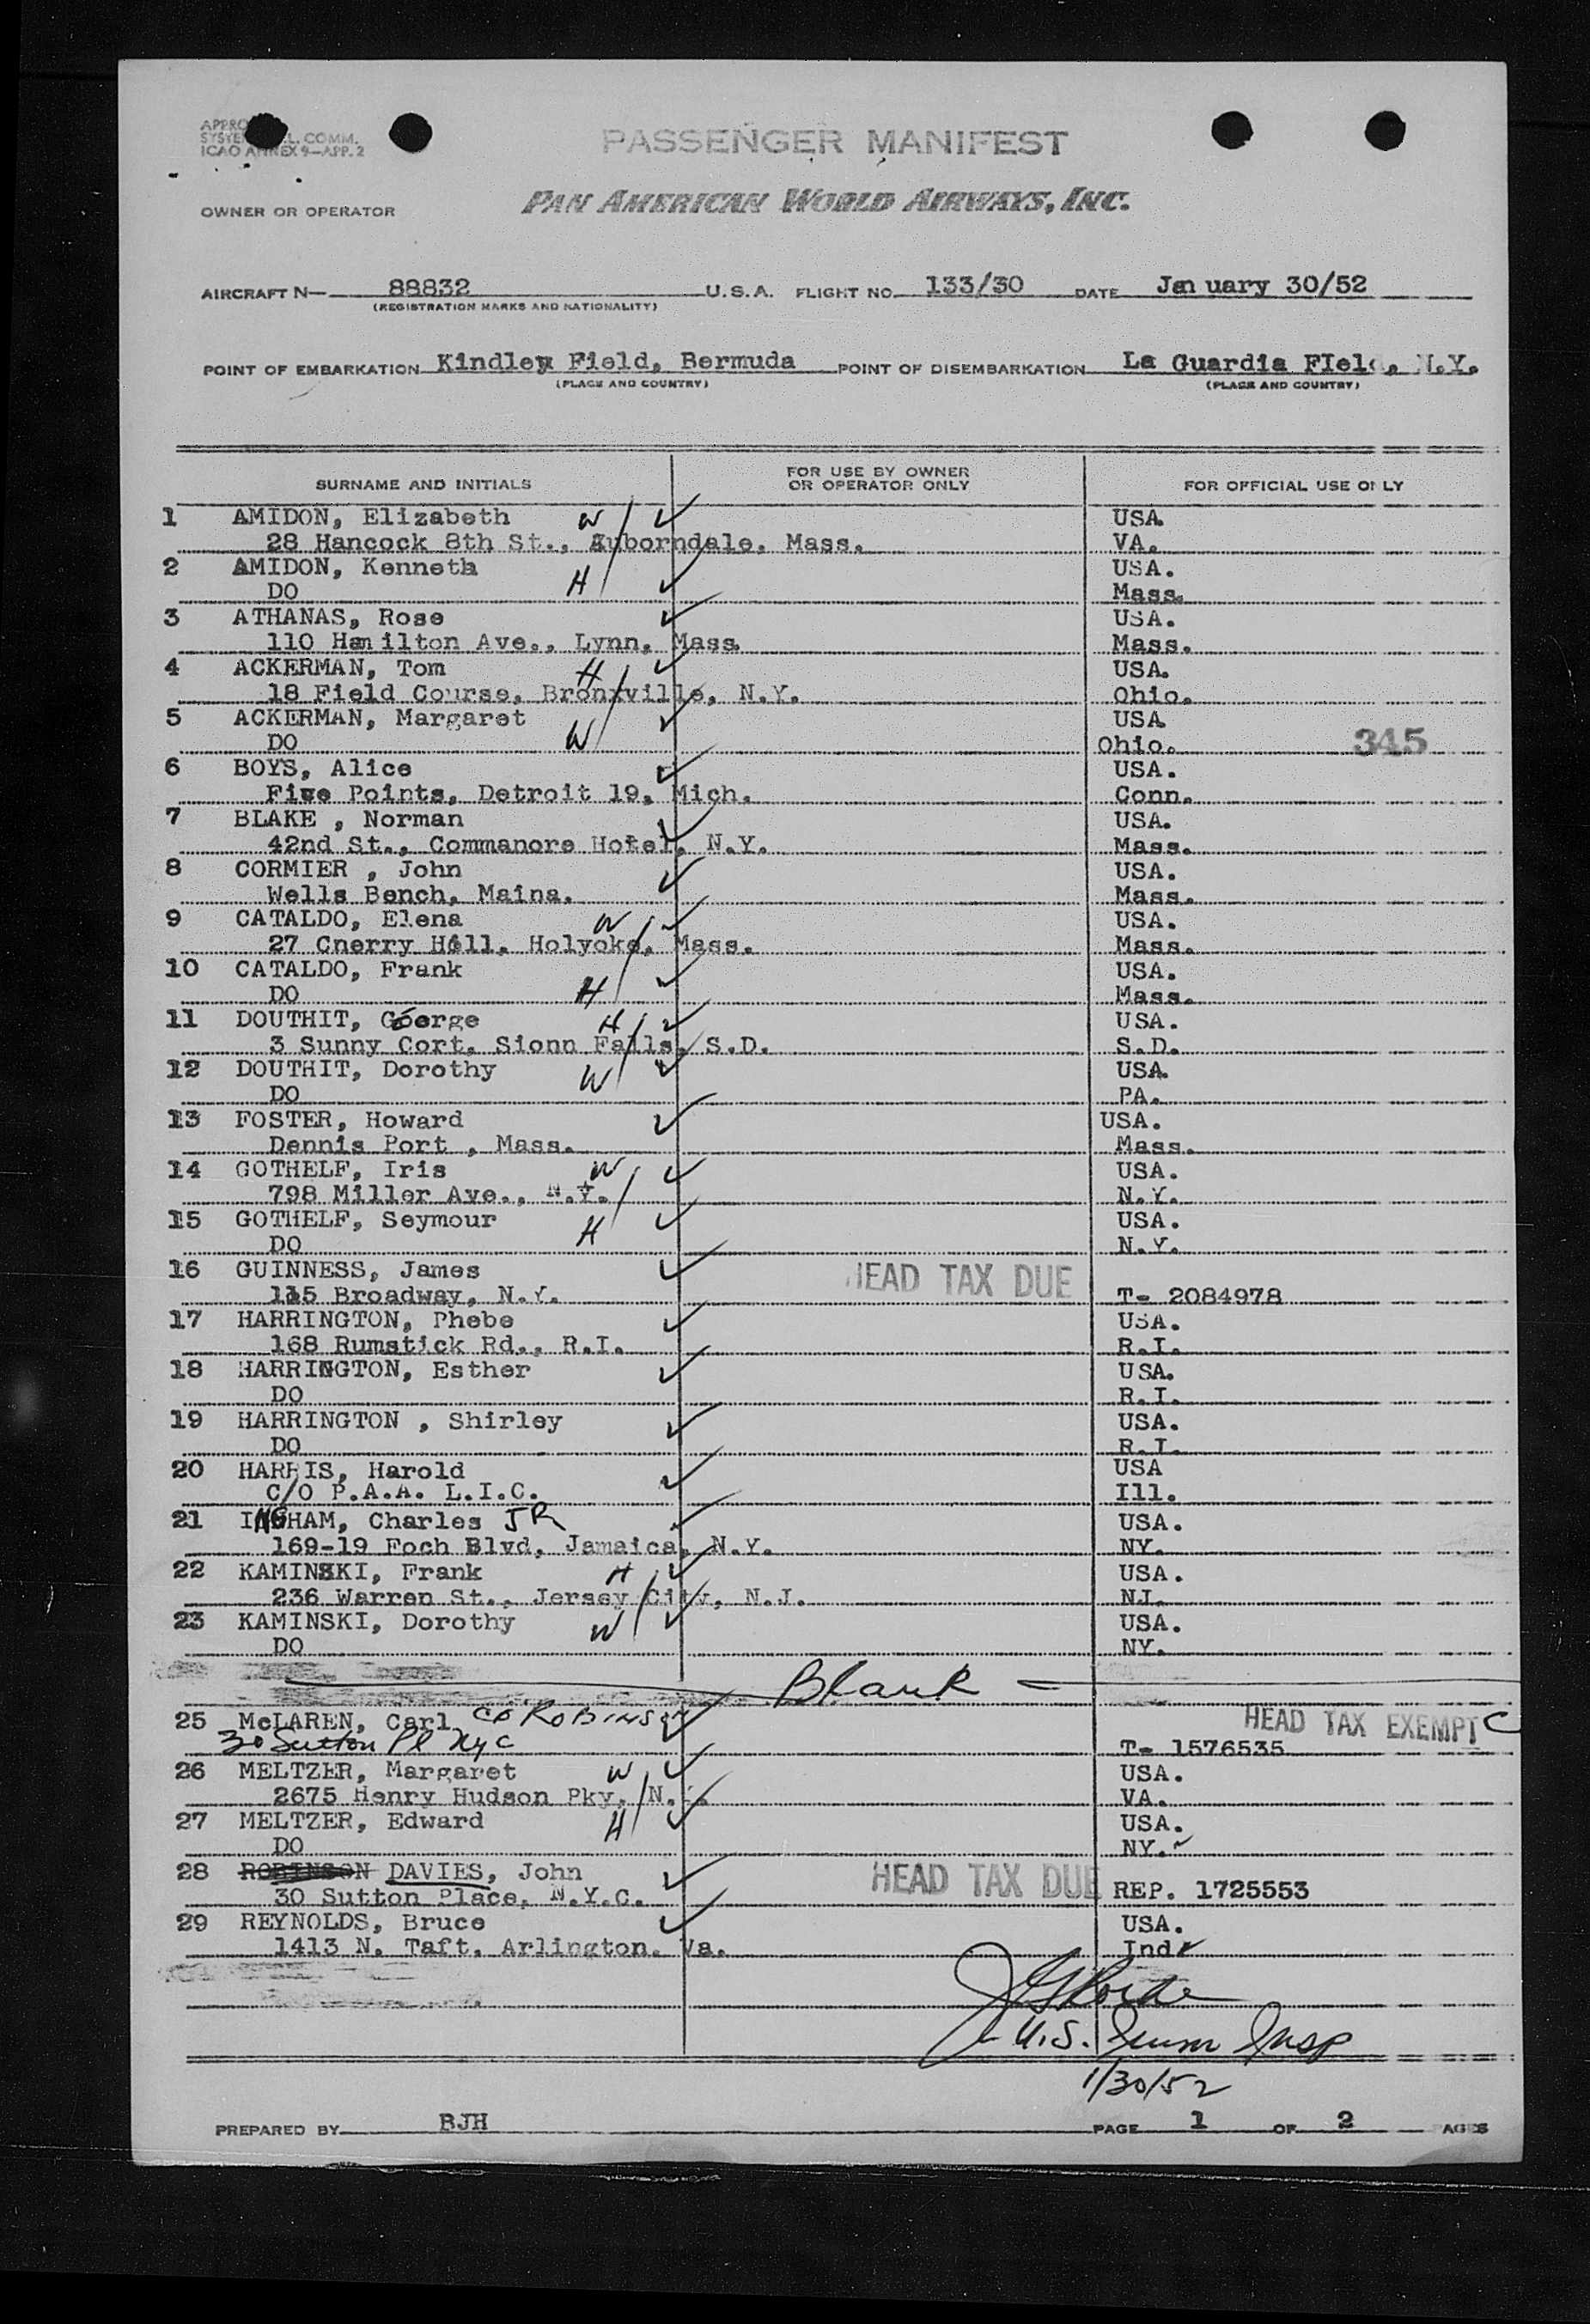 PASSENGER MANIFEST
ICAO ANNEX 9—APP. 2
OWNER OR OPERATOR PAN AMERICAN WORLD AIRWAYS, INC.
AIRCRAFT N— 88832 U.S.A. FLIGHT NO. 133/30 DATE January 30/52
(REGISTRATION MARKS AND NATIONALITY)
POINT OF EMBARKATION Kindley Field, Bermuda POINT OF DISEMBARKATION La Guardia FIeld, N.Y.
(PLACE AND COUNTRY) (PLACE AND COUNTRY)
SURNAME AND INITIALS FOR USE BY OWNER OR OPERATOR ONLY FOR OFFICIAL USE ONLY
1 AMIDON, Elizabeth W USA.
28 Hancock 8th St., Auborndale, Mass. VA.
2 AMIDON, Kenneth USA.
DO H Mass.
3 ATHANAS, Rose USA.
110 Hamilton Ave., Lynn, Mass. Mass.
4 ACKERMAN, Tom H USA.
18 Field Course, Bronxville, N.Y. Ohio.
5 ACKERMAN, Margaret USA
DO W Ohio. 345
6 BOYS, Alice USA.
Five Points, Detroit 19, Mich. Conn.
7 BLAKE , Norman USA.
42nd St., Commanore Hotel, N.Y. Mass.
8 CORMIER , John USA.
Wells Bench, Maina. Mass.
9 CATALDO, Elena W USA.
27 Cnerry Hill, Holyoke, Mass. Mass.
10 CATALDO, Frank USA.
DO H Mass.
11 DOUTHIT, George H USA.
3 Sunny Cort, Sionn Falls, S.D. S.D.
12 DOUTHIT, Dorothy W USA.
DO PA.
13 FOSTER, Howard USA.
Dennis Port , Mass. Mass.
14 GOTHELF, Iris W USA.
798 Miller Ave., N.Y. N.Y.
15 GOTHELF, Seymour H USA.
DO N.Y.
16 GUINNESS, James HEAD TAX DUE
115 Broadway, N.Y. T- 2084978
17 HARRINGTON, Phebe USA.
168 Rumstick Rd., R.I. R.I.
18 HARRINGTON, Esther USA.
DO R.I.
19 HARRINGTON , Shirley USA.
DO R.I.
20 HARRIS, Harold USA
C/O P.A.A. L.I.C. Ill.
21 INGHAM, Charles JR USA.
169-19 Foch Blvd, Jamaica, N.Y. NY.
22 KAMINSKI, Frank H USA.
236 Warren St., Jersey City, N.J. NJ.
23 KAMINSKI, Dorothy W USA.
DO NY.
Blank
25 McLAREN, Carl c/o ROBINSON HEAD TAX EXEMPT C
30 Sutton Pl NYC T- 1576535
26 MELTZER, Margaret W USA.
2675 Henry Hudson Pky, N.Y. VA.
27 MELTZER, Edward H USA.
DO NY.
28 ROBINSON DAVIES, John HEAD TAX DUE REP. 1725553
30 Sutton Place, N.Y.C.
29 REYNOLDS, Bruce USA.
1413 N. Taft, Arlington, Va. Ind.
U.S. Imm Insp
1/30/52
PREPARED BY BJH PAGE 1 OF 2 PAGES